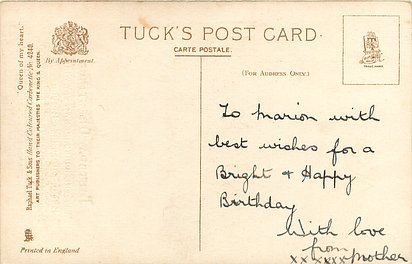 TUCK'S POST CARD.
CARTE POSTALE.
By Appointment.
(FOR ADDRESS ONLY.)
TRADE MARK
"Queen of my heart."
Raphael Tuck & Sons' Hand Coloured Carbonette No. 4849.
ART PUBLISHERS TO THEIR MAJESTIES THE KING & QUEEN.
Printed in England
To Marion with
best wishes for a
Bright & Happy
Birthday
With love
from
xxxxxxx Mother